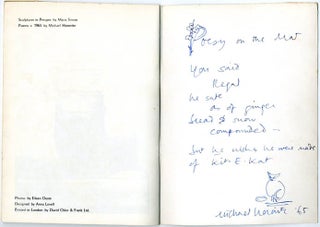 Sculptures in Perspex by Mary Stroes
Poems © 1965 by Michael Horovitz
Photos by Edwin Dunn
Designed by Anna Lovell
Printed in London by David Chinn & Frank Ltd.
Posy on the Mat
You said
Regal
he sat
as of ginger
bread & snow
compounded —
But he wishes he were made
of Kit-E-Kat
Michael Horovitz '65